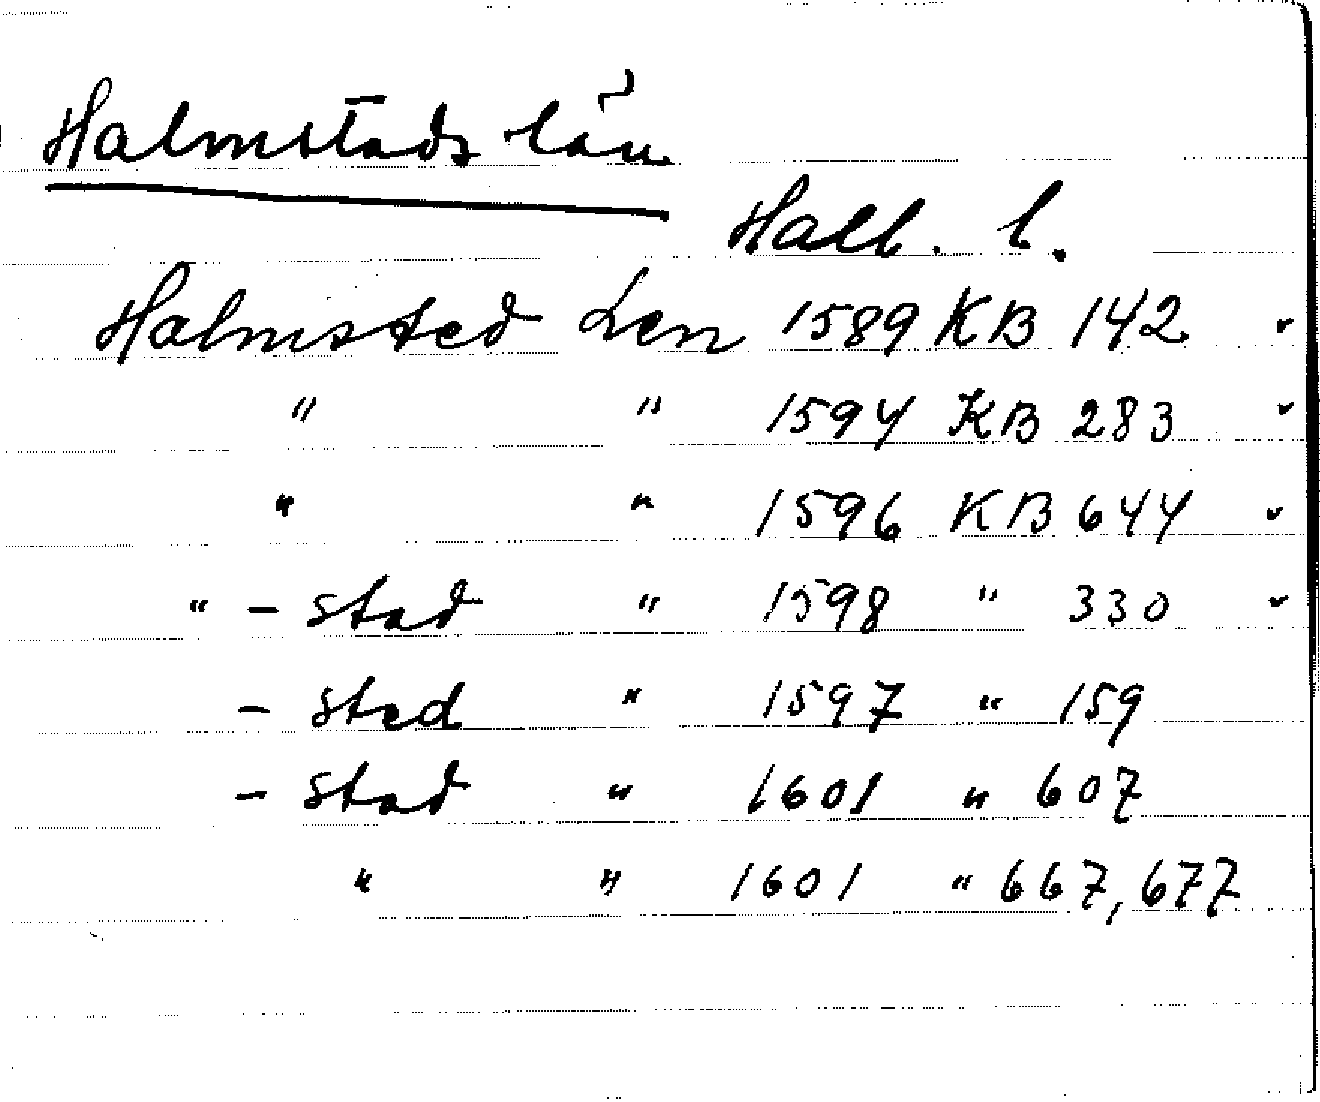 Halmstads län
Hall. l.
Halmsted Len 1589 KB 142 ✓
" " 1594 KB 283 ✓
" " 1596 KB 644 ✓
" - stad " 1598 " 330 ✓
- sted " 1597 " 159
- stad " 1601 " 607
" " 1601 " 667, 677